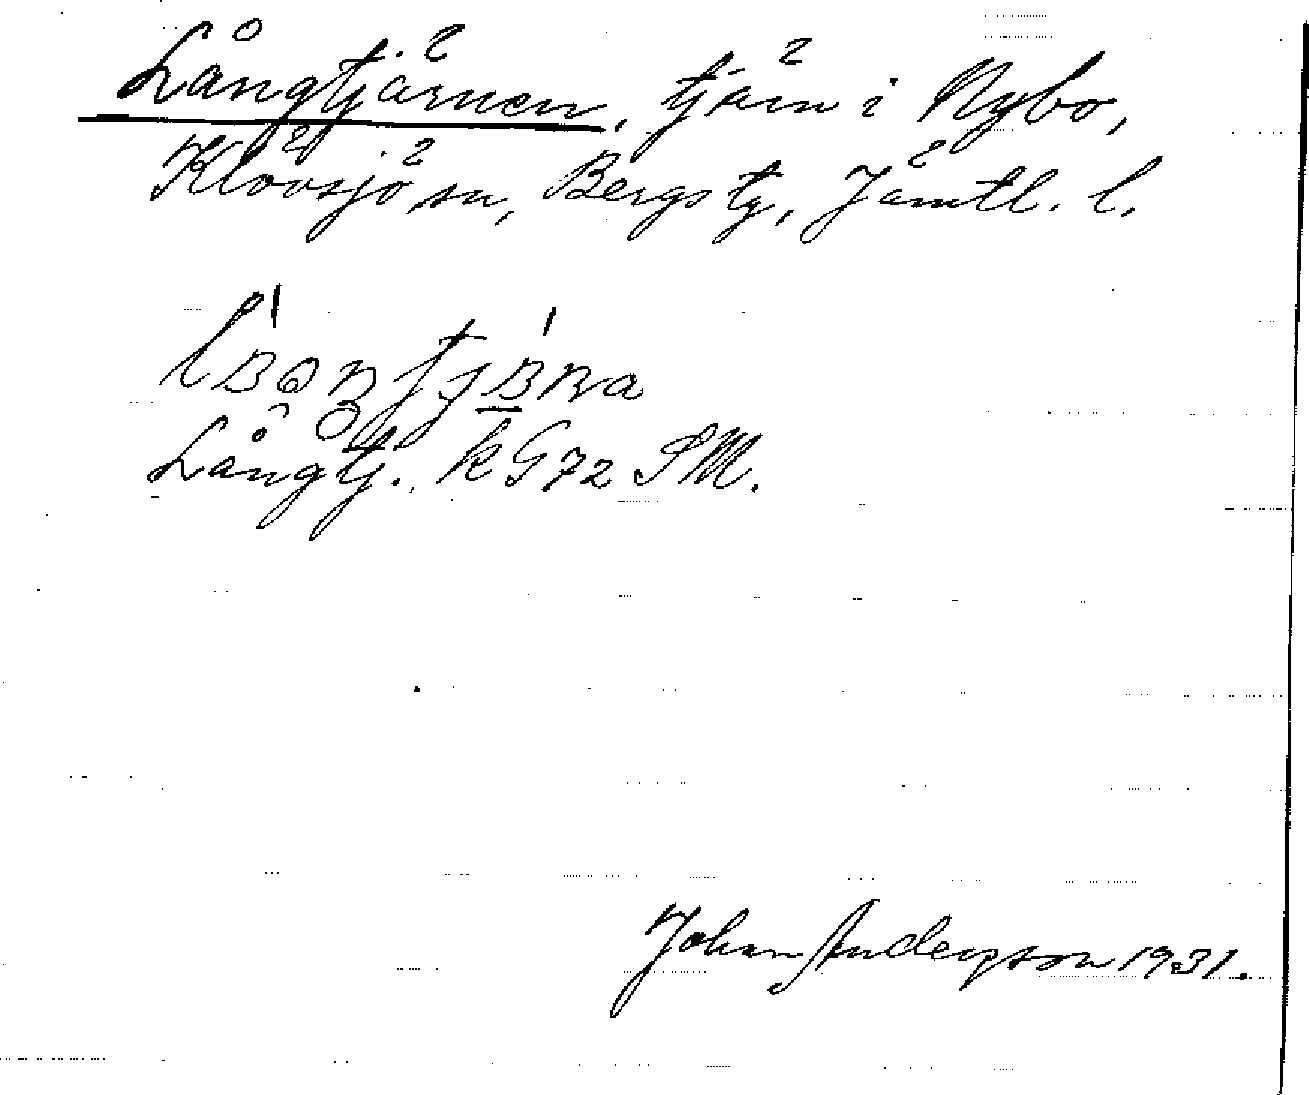 Långtjärnen, tjärn i Nybo,
Klövsjö sn, Bergs tg, Jämtl. l.
Långtj. kG72 SM.
Johan Andersson 1931.